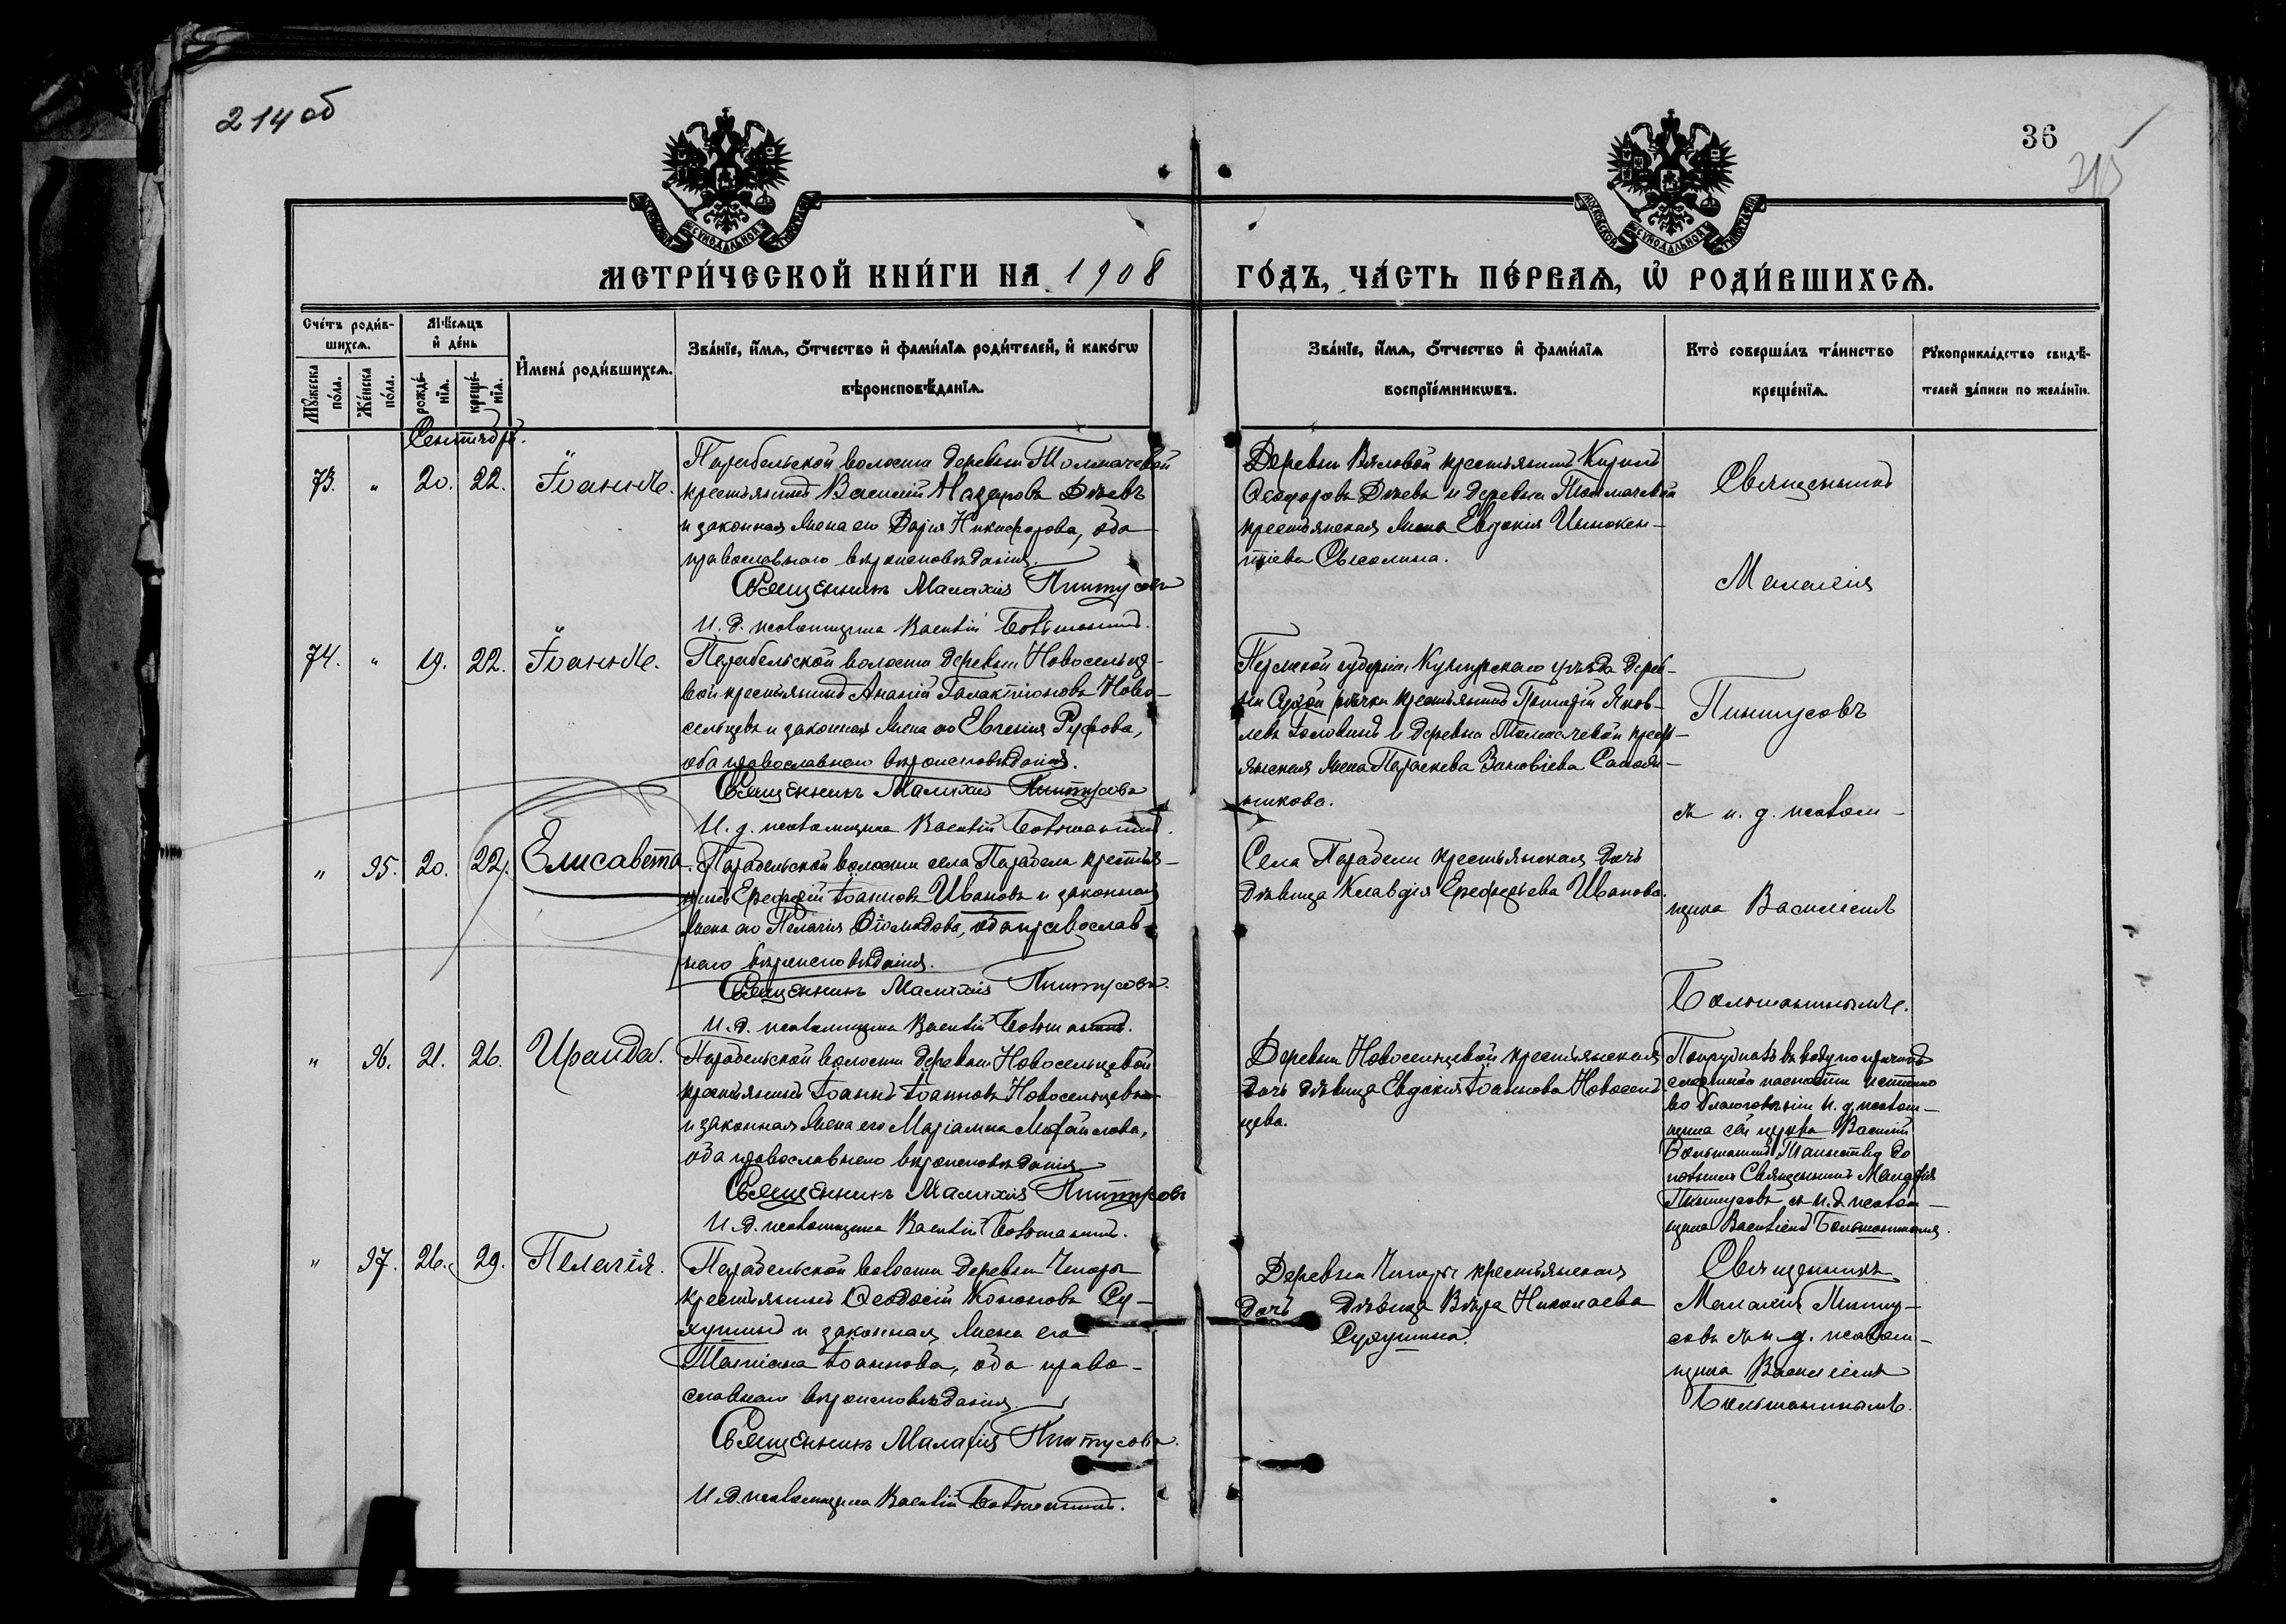 214 об
36
215
МОСКОВСКОЙ СѴНОДАЛЬНОЙ ТИПОГРАФІИ
МОСКОВСКОЙ СѴНОДАЛЬНОЙ ТИПОГРАФІИ
МЕТРИ́ЧЕСКОЙ КНИ́ГИ НА 1908 ГО́ДЪ, ЧА́СТЬ ПЕ́РВАѦ, Ѡ҆ РОДИ́ВШИХСѦ.
Сче́тъ роди́в-
шихсѧ.
Мꙋ́жеска по́ла.
Же́нска по́ла.
Мѣ́сѧцъ
и҆ де́нь
рожде́-нїѧ.
креще́-нїѧ.
И҆мена̀ роди́вшихсѧ.
Зва́нїе, и҆́мѧ, ѻ҆́тчество и҆ фами́лїѧ роди́телей, и҆ како́гѡ
вѣроисповѣ́данїѧ.
Зва́нїе, и҆́мѧ, ѻ҆́тчество и҆ фами́лїѧ
воспрїе́мникѡвъ.
Кто̀ соверша́лъ та́инство
креще́нїѧ.
Рꙋкоприкла́дство свидѣ́-
телей за́писи по жела́нїю.
Сентябрь.
73. " 20. 22. Іоаннъ.
Парабельской волости деревни Толмачевой
крестьянинъ Василій Назаровъ Дѣевъ
и законная жена его Дарія Никифорова, оба
православнаго вѣроисповѣданія.
Священникъ Малахія Пинтусовъ
И. д. псаломщика Василій Большанинъ.
Деревни Вяловой крестьянинъ Кириллъ
Ѳеодоровъ Дѣевъ и деревни Толмачевой
крестьянская жена Евдокія Иннокен-
тіева Сысолина.
Священникъ
Малахія
74. " 19. 22. Іоаннъ.
Парабельской волости деревни Новосельце-
вой крестьянинъ Ананій Галактіоновъ Ново-
сельцевъ и законная жена его Евгенія Руфова,
оба православнаго вѣроисповѣданія.
Священникъ Малахія Пинтусовъ
И. д. псаломщика Василій Большанинъ.
Пермской губерніи, Кунгурскаго уѣзда дерев-
ни Сухой рѣчки крестьянинъ Яков-
левъ Головинъ и деревни Толмачевой кресть-
янская жена Параскева Зиновіева
никова.
Пинтусовъ
съ и. д. псалом-
" 95. 20. 22. Елисавета.
Парабельской волости села Парабели крестья-
нинъ Ерофей Іоанновъ Ивановъ и законная
жена его Пелагія оба православ-
наго вѣроисповѣданія.
Священникъ Малахія Пинтусовъ.
И. д. псаломщика Василій Большанинъ.
Села Парабели крестьянская дочь
дѣвица Клавдія Ерофеева Иванова.
щика Василіемъ
Большанинымъ.
" 96. 21. 26. Ираида.
Парабельской волости деревни Новосельцевой
крестьянинъ Іоаннъ Іоанновъ Новосельцевъ
и законная жена его Маріамна Михайлова,
оба православнаго вѣроисповѣданія
Священникъ Малахія Пинтусовъ
И. д. псаломщика Василій Большанинъ.
Деревни Новосельцевой крестьянская
дочь дѣвица Евдокія Іоаннова Новосель-
цева.
Погружалъ въ воду по причинѣ
смертной опасности
и. д. псалом-
щика сей церкви Василій
Большанинъ. Таинство до
полнилъ Священникъ Малахія
Пинтусовъ съ и. д. псалом-
щика Василіемъ Большанинымъ.
" 97. 26. 29. Пелагія.
Парабельской волости деревни Чигары
крестьянинъ Ѳеодосій Кононовъ Су-
хушинъ и законная жена его
Татіана Іоаннова, оба право-
славнаго вѣроисповѣданія.
Священникъ Малахія Пинтусовъ.
И. д. псаломщика Василій Большанинъ.
Деревни Чигары крестьянская
дочь дѣвица Вѣра Николаева
Сухушина.
Священникъ
Малахія Пинту-
совъ съ и. д. псалом-
щика Василіемъ
Большанинымъ.